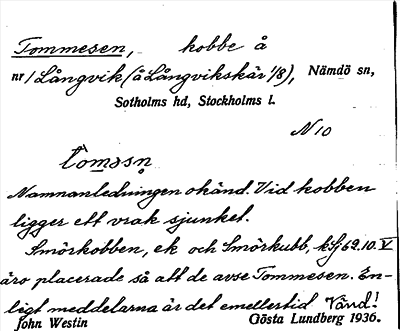 Tommesen, kobbe å
nr 1 Långvik (å Långvikskär 1/8), Nämdö sn,
Sotholms hd, Stockholms l.
N 10
tomәsn̥
Namnanledningen okänd. Vid kobben
ligger ett vrak sjunket.
Smörkobben, ek och Smörkubb, kSj 69.10. V
äro placerade så att de avse Tommesen. En-
ligt meddelarna är det emellertid Vänd!
John Westin Gösta Lundberg 1936.